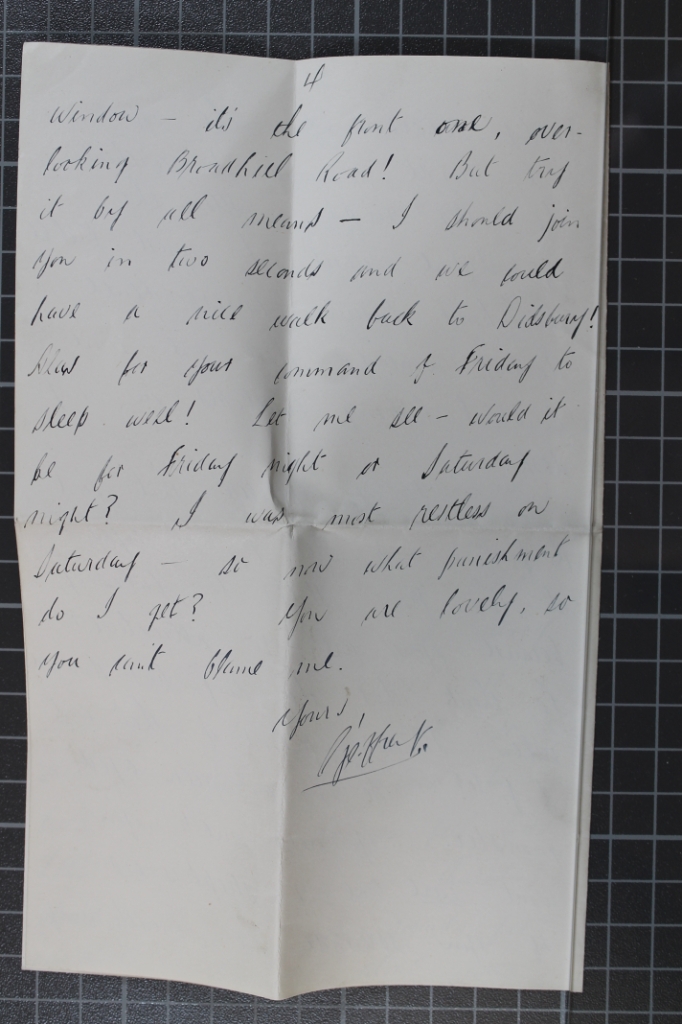 4
window — it's the front one, over-
looking Broadhill Road! But try
it by all means — I should join
you in two seconds and we could
have a nice walk back to Didsbury!
Alas for your command of Friday to
sleep well! Let me see — would it
be for Friday night or Saturday
night? I was most restless on
Saturday — so now what punishment
do I get? You are lovely, so
you can't blame me.
Yours,
Geoffrey.